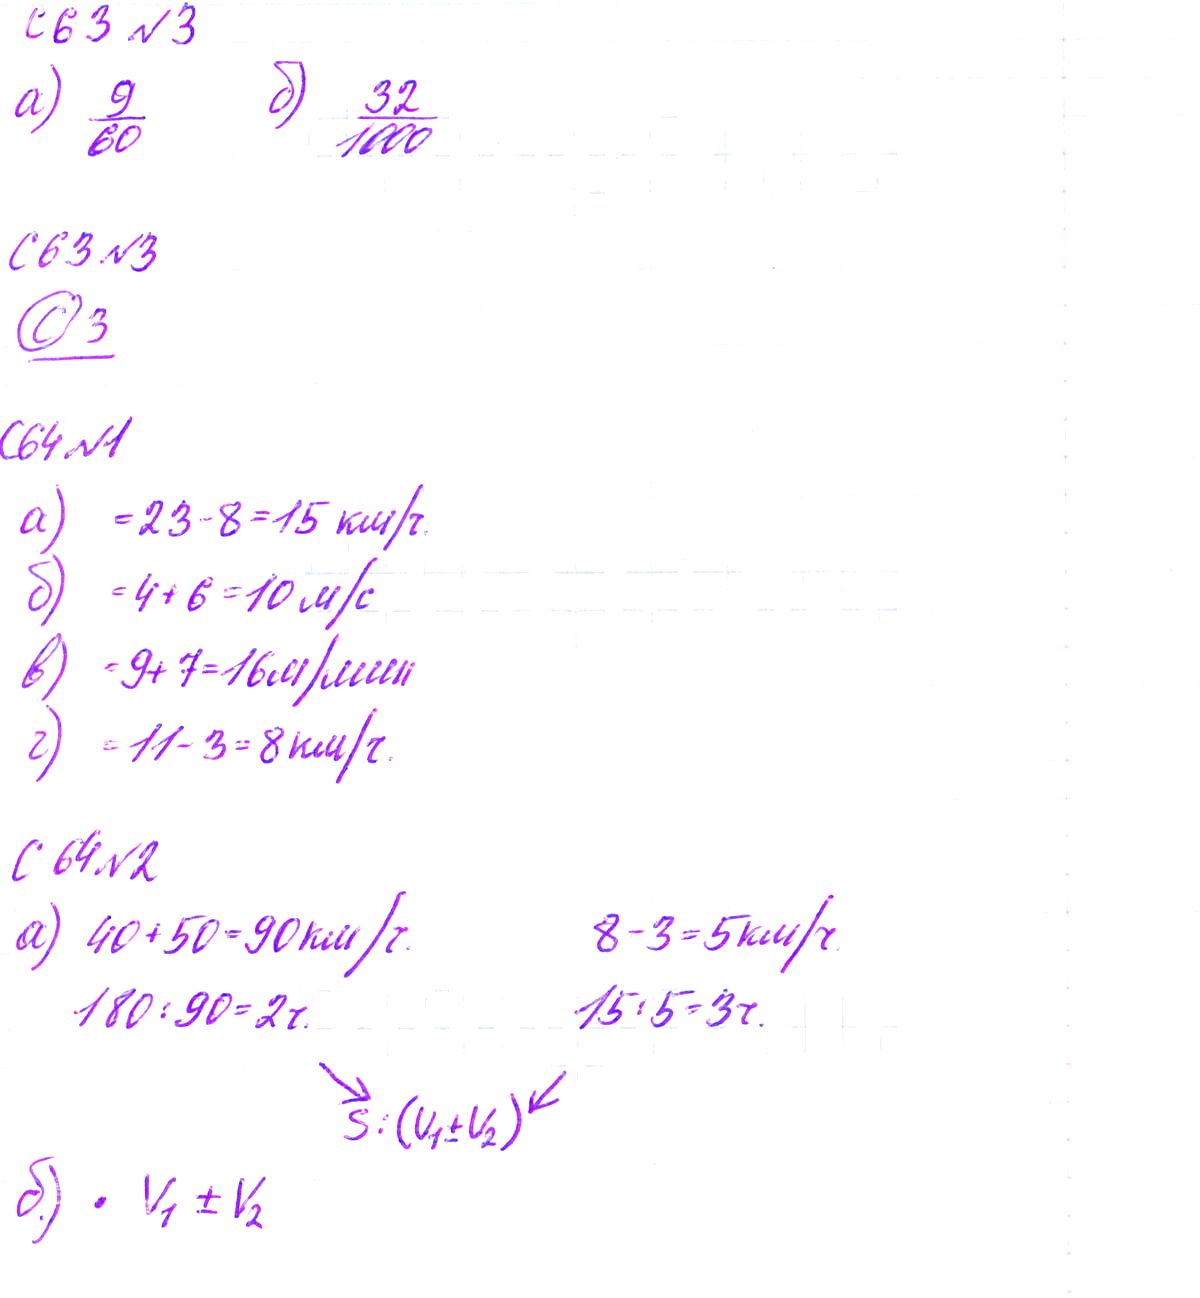 С63 №3
а) 9/60 б) 32/1000
С63 №3
С 3
С64 №1
а) =23-8=15 км/ч.
б) =4+6=10м/с
в) =9+7=16м/мин
г) =11-3=8км/ч.
С 64 №2
а) 40+50=90км/ч. 8-3=5км/ч.
180:90=2ч. 15:5=3ч.
S:(V₁±V₂)
б) • V₁ ± V₂